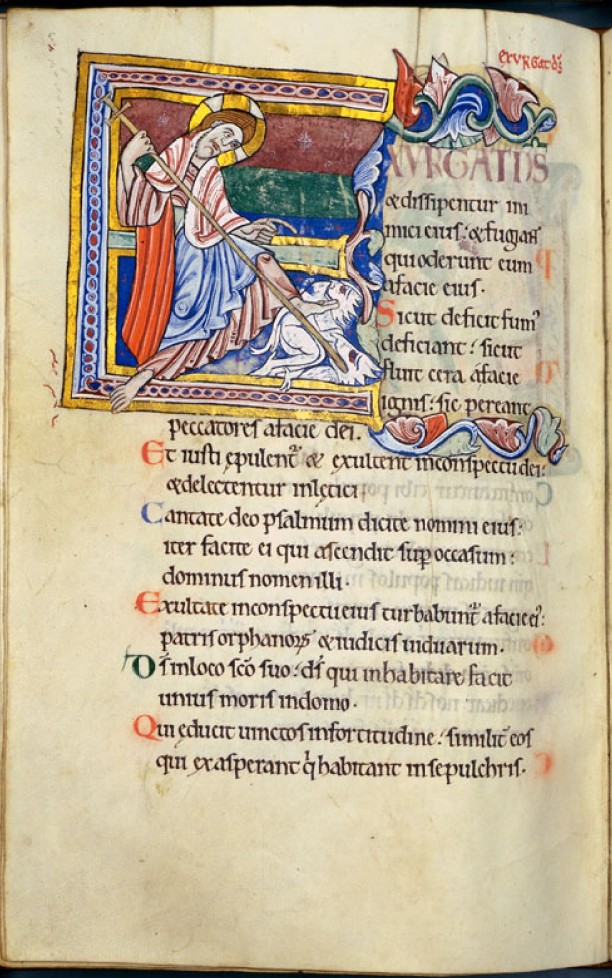 exurgat ds̄
EXVRGAT DS
& dissipentur ini
mici eius: & fugiant
qui oderunt eum
a facie eius.
Sicut deficit fum᾽
deficiant: sicut
fluit cera a facie
ignis: sic pereant
peccatores a facie dei.
Et iusti ępulent᾽ & exultent in conspectu dei:
& delectentur in lęticia.
Cantate deo psalmum dicite nomini eius:
iter facite ei qui ascendit sup̄ occasum:
dominus nomen illi.
Exultate in conspectu eius turbabunt᾽ a facie ei᾽:
patris orphanoꝝ & iudicis uiduarum.
Ds̄ in loco sc̄o suo: ds̄ qui inhabitare facit
unius moris in domo.
Qui ęducit uinctos in fortitudine: similit̄ eos
qui exasperant q̇ habitant in sepulchris.